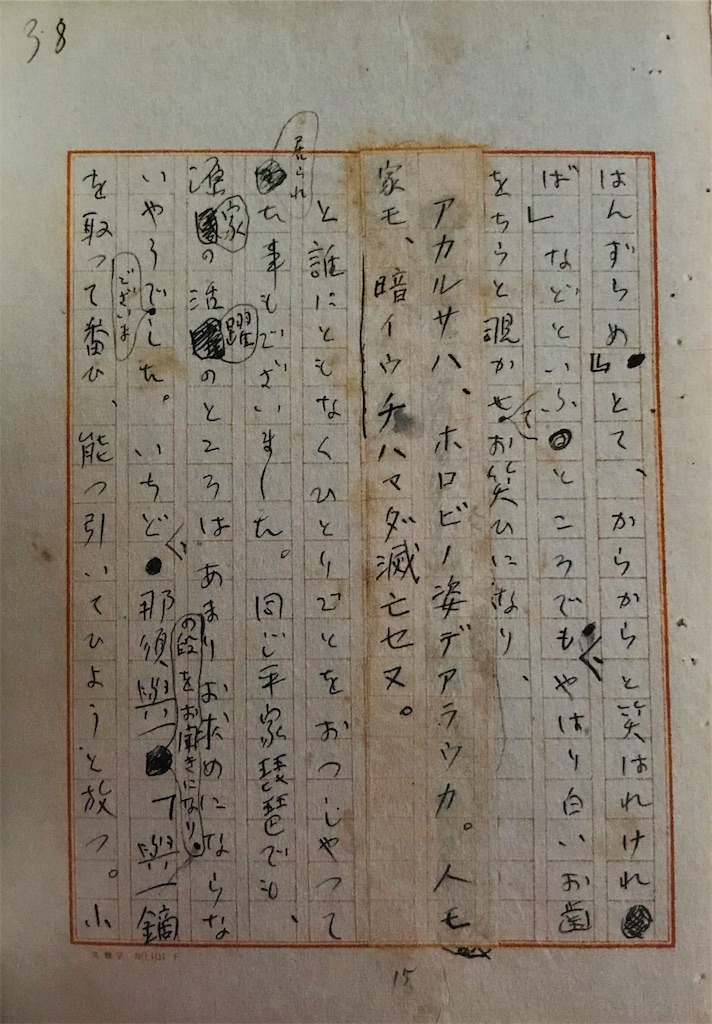 38
はんずらめ』とて、からからと笑はれけれ
ば」などといふところでもやはり白いお歯
をちらと覗かせてお笑ひになり、
アカルサハ、ホロビノ姿デアラウカ。人モ
家モ、暗イウチハマダ滅亡セヌ。
と誰にともなくひとりごとをおつしやつて
居られた事もございました。同じ平家琵琶でも、
源家の活躍のところはあまりお求めにならな
いやうでございました。いちど、那須與一の段をお聞きになり、「與一鏑
を取つて番ひ、能つ引いてひようと放つ。小
15